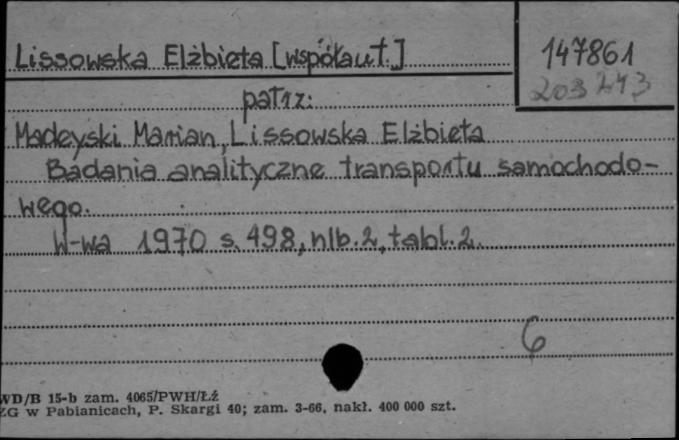 Lissowska Elżbieta [współaut.]
147861
203243
patrz:
Madeyski Marian, Lissowska Elżbieta
Badania analityczne transportu samochodo-
wego.
W-wa 1970 s. 498, nlb. 2, tabl. 2.
6
WD/B 15-b zam. 4065/PWH/Łź
ZG w Pabianicach, P. Skargi 40; zam. 3-66, nakł. 400 000 szt.